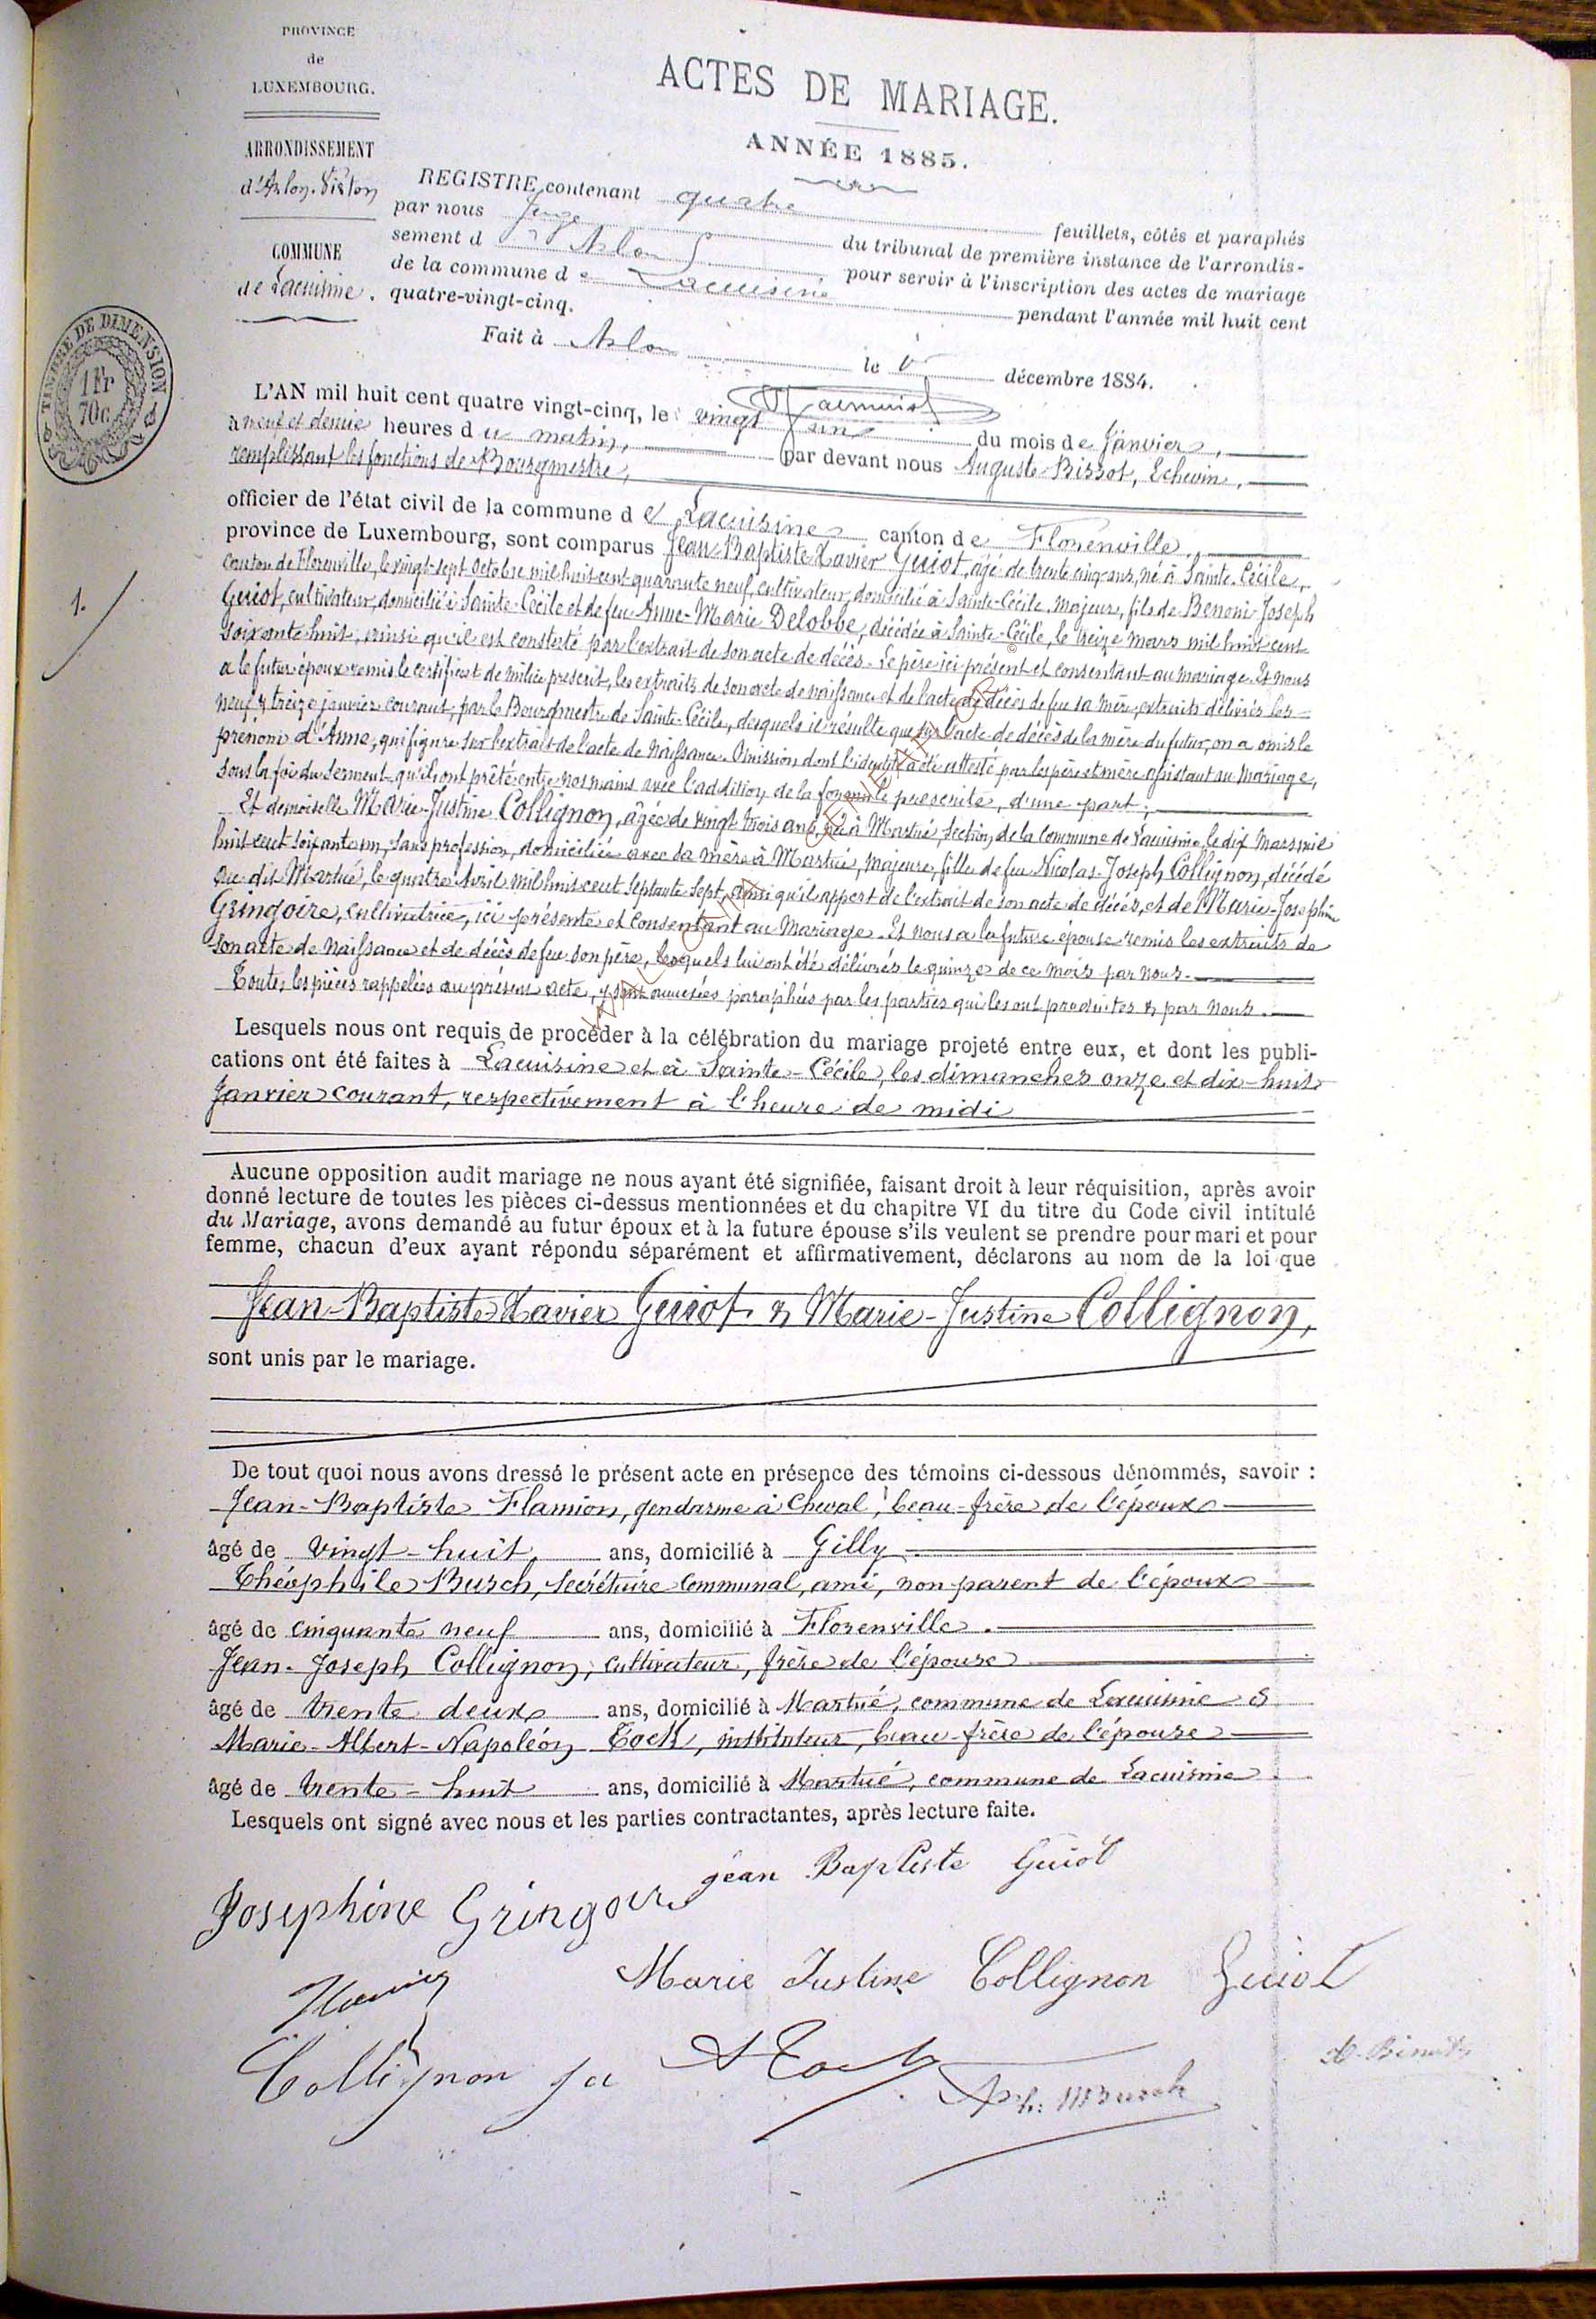 PROVINCE
de
LUXEMBOURG.
ARRONDISSEMENT
d'Arlon-Virton
COMMUNE
de Lacuisine.
TIMBRE DE DIMENSION
1 Fr
70c.
1.
ACTES DE MARIAGE.
ANNÉE 1885.
REGISTRE contenant quatre feuillets, côtés et paraphés
par nous Juge du tribunal de première instance de l'arrondis-
sement d'Arlon pour servir à l'inscription des actes de mariage
de la commune de Lacuisine pendant l'année mil huit cent
quatre-vingt-cinq.
Fait à Arlon le décembre 1884.
L'AN mil huit cent quatre vingt-cinq, le vingt un du mois de Janvier,
à neuf et demie heures du matin, par devant nous Auguste Bissot, Echevin,
remplissant les fonctions de Bourgmestre,
officier de l'état civil de la commune de Lacuisine canton de Florenville,
province de Luxembourg, sont comparus Jean-Baptiste Xavier Guiot, âgé de trente cinq ans, né à Sainte-Cécile,
canton de Florenville, le vingt-sept octobre mil huit cent quarante neuf, cultivateur, domicilié à Sainte-Cécile, majeur, fils de Benoni-Joseph
Guiot, cultivateur, domicilié à Sainte-Cécile et de feu Anne-Marie Delobbe, décédée à Sainte-Cécile, le treize mars mil huit cent
soixante huit, ainsi qu'il est constaté par l'extrait de son acte de décès. Le père ici présent et consentant au mariage. Et nous
a le futur époux remis le certificat de milice prescrit, les extraits de son acte de naissance et de l'acte de décès de feu sa mère, extraits délivrés les
neuf & treize janvier courant, par le Bourgmestre de Sainte-Cécile, desquels il résulte que sur l'acte de décès de la mère du futur, on a omis le
prénom d'Anne, qui figure sur l'extrait de l'acte de naissance. Omission dont l'identité a été attesté par les père et mère assistant au mariage,
sous la foi du serment qu'ils ont prêté entre nos mains avec l'addition de la formule prescrite, d'une part;
Et demoiselle Marie-Justine Collignon, âgée de vingt trois ans, née à Martué, section de la commune de Lacuisine, le dix mars mil
huit cent soixante un, sans profession, domiciliée avec sa mère à Martué, majeure, fille de feu Nicolas-Joseph Collignon, décédé
au dit Martué, le quatre Avril mil huit cent septante sept, ainsi qu'il appert de l'extrait de son acte de décès, et de Marie-Joséphine
Gringoire, cultivatrice, ici présente et consentant au mariage. Et nous a la future épouse remis les extraits de
son acte de naissance et de décès de feu son père, lesquels lui ont été délivrés le quinze de ce mois par nous.
Toutes les pièces rappelées au présent acte, y sont annexées paraphées par les parties qui les ont produites & par nous.
Lesquels nous ont requis de procéder à la célébration du mariage projeté entre eux, et dont les publi-
cations ont été faites à Lacuisine et à Sainte-Cécile, les dimanches onze et dix-huit
Janvier courant, respectivement à l'heure de midi
Aucune opposition audit mariage ne nous ayant été signifiée, faisant droit à leur réquisition, après avoir
donné lecture de toutes les pièces ci-dessus mentionnées et du chapitre VI du titre du Code civil intitulé
du Mariage, avons demandé au futur époux et à la future épouse s'ils veulent se prendre pour mari et pour
femme, chacun d'eux ayant répondu séparément et affirmativement, déclarons au nom de la loi que
Jean-Baptiste Xavier Guiot & Marie-Justine Collignon,
sont unis par le mariage.
De tout quoi nous avons dressé le présent acte en présence des témoins ci-dessous dénommés, savoir :
Jean-Baptiste Flamion, gendarme à cheval, beau-frère de l'époux
âgé de vingt-huit ans, domicilié à Gilly
Théophile Bursch, secrétaire communal, ami, non parent de l'époux
âgé de cinquante neuf ans, domicilié à Florenville.
Jean-Joseph Collignon, cultivateur, frère de l'épouse
âgé de trente deux ans, domicilié à Martué, commune de Lacuisine &
Marie-Albert-Napoléon Tock, instituteur, beau-frère de l'épouse
âgé de trente-huit ans, domicilié à Martué, commune de Lacuisine.
Lesquels ont signé avec nous et les parties contractantes, après lecture faite.
jean Baptiste Guiot
Josephine Gringoire
Marie Justine Collignon Guiot
Collignon ja A Tock
Ph: Bursch